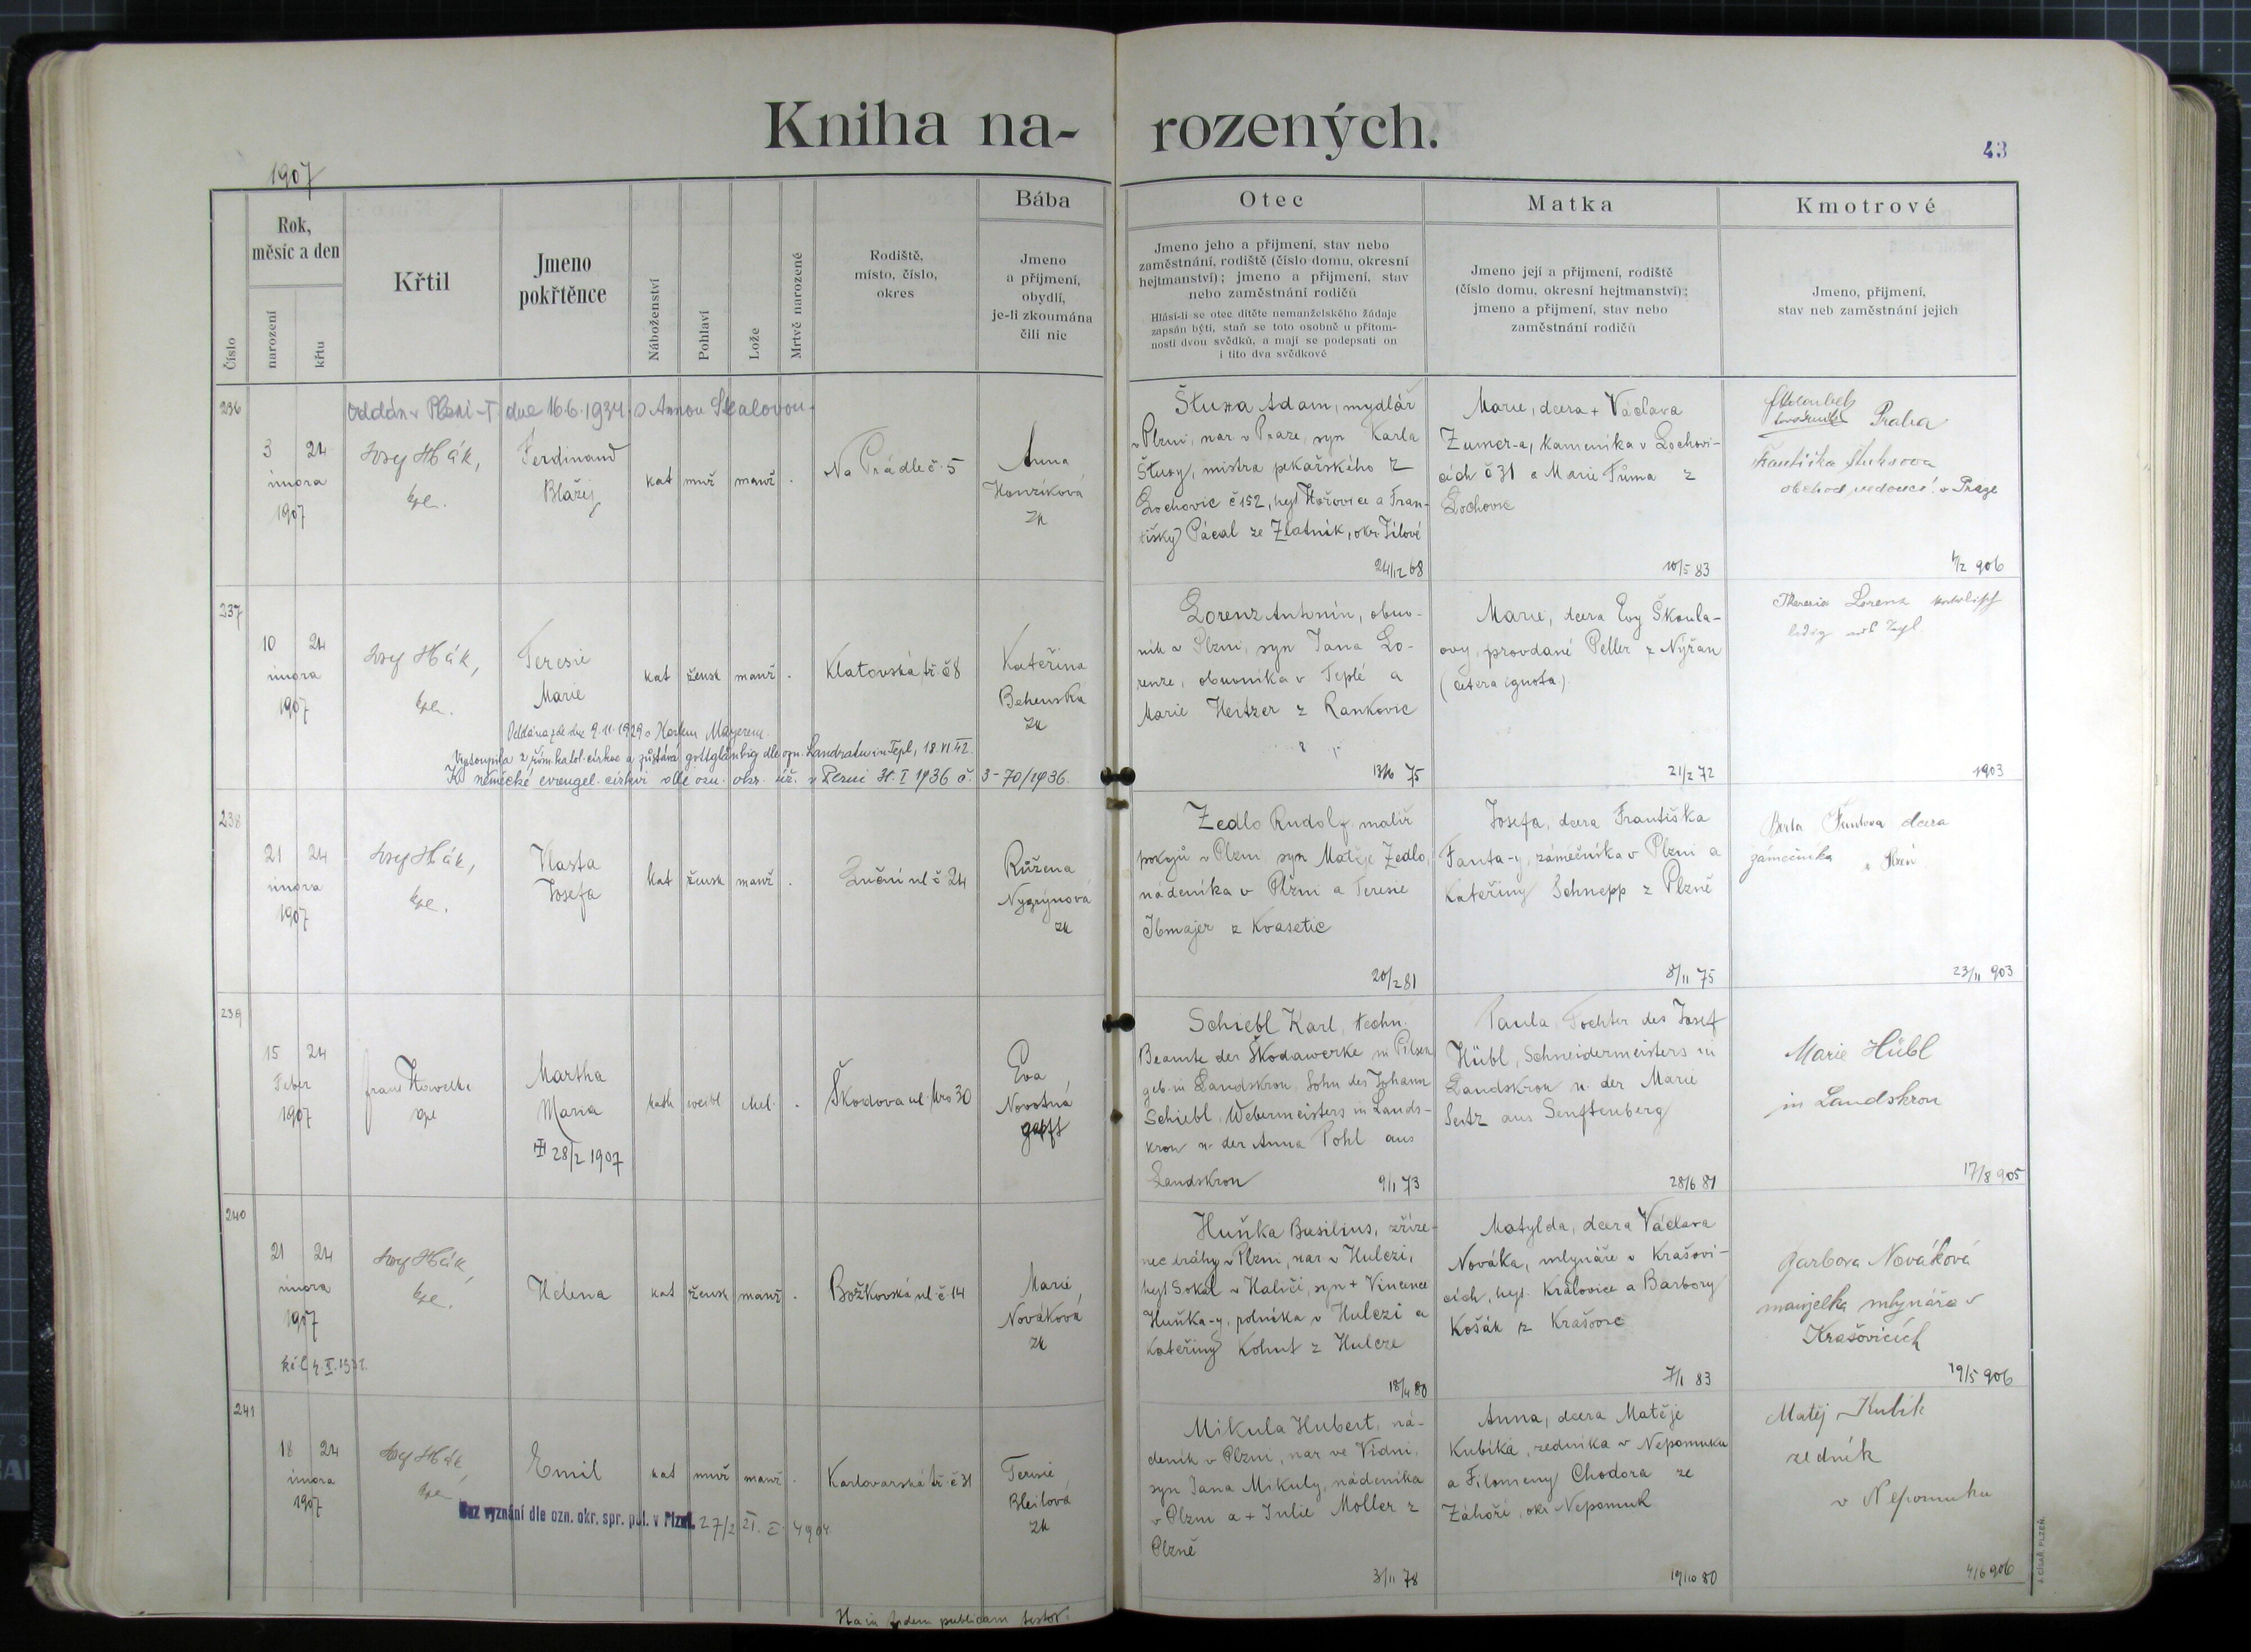 Kniha na-rozených.
43
1907
Číslo
Rok, měsíc a den
narození
křtu
Křtil
Jmeno pokřtěnce
Náboženství
Pohlaví
Lože
Mrtvě narozené
Rodiště, místo, číslo, okres
Bába
Jmeno a příjmení, obydlí, je-li zkoumána čili nic
Otec
Jmeno jeho a příjmení, stav nebo
zaměstnání, rodiště (číslo domu, okresní
hejtmanství); jmeno a příjmení, stav
nebo zaměstnání rodičů
Hlásí-li se otec dítěte nemanželského žádaje
zapsán býti, staň se toto osobně u přítom-
nosti dvou svědků, a mají se podepsati on
i tito dva svědkové
Matka
Jmeno její a příjmení, rodiště
(číslo domu, okresní hejtmanství);
jmeno a příjmení, stav nebo
zaměstnání rodičů
Kmotrové
Jmeno, příjmení,
stav neb zaměstnání jejich
236
Oddán v Plzni-I dne 16.6.1934 s Annou Skalovou.
3 24
února
1907
Josef Hák,
kpl.
Ferdinand
Blažej
kat muž manž .
Na Prádle č. 5
Anna
Honzíková
zk
Štuxa Adam, mydlář
v Plzni, nar v Praze, syn Karla
Štuxy, mistra pekařského z
Lochovic č 152, hejt Hořovice a Fran-
tišky Pácal ze Zlatník, okr. Jílové
24/12 68
Marie, dcera + Václava
Zumer-a, kameníka v Lochovi-
cích č 31 a Marie Tůma z
Lochovic
10/5 83
Praha
Františka
obchod vedoucí v Praze
906
237
10 24
února
1907
Josef Hák,
kpl.
Teresie
Marie
kat žensk manž .
Klatovská tř. č 8
Kateřina
Behenská
zk
Oddána zde dne 9.11.1929 s Karlem Mayerem.
Vystoupila z řím. katol. církve a zůstává gottgläubig dle ozn. Landratu in Tepl, 18.VI.42.
K německé evangel. církvi dle ozn. okr. úř. v Plzni 31. I 1936 č. 3-70/1936.
Lorenz Antonín, obuv-
ník v Plzni, syn Jana Lo-
renze, obuvníka v Teplé a
Marie Heitzer z Rankovic
75
Marie, dcera Evy Škoula-
ovy, provdané Peller z Nýřan
(cetera ignota).
21/2 72
Theresia Lorenz katholisch
ledig aus Tepl
1903
238
21 24
února
1907
Josef Hák,
kpl.
Vlasta
Josefa
kat žensk manž .
Luční ul č 24
Růžena
Nygrýnová
zk
Zedlo Rudolf, malíř
pokojů v Plzni, syn Matěje Zedlo,
nádeníka v Plzni a Teresie
Ibmajer z Kvasetic
20/2 81
Josefa, dcera Františka
Fanta-y, zámečníka v Plzni a
Kateřiny Schnepp z Plzně
8/11 75
Berta Fantova dcera
zámečníka v Plzni
23/11 903
239
15 24
Feber
1907
Franz
Martha
Maria
28/2 1907
kath weibl ehel. .
Škodova ul. Nro 30
Eva
Novotná
gepft
Schiebl Karl, techn.
Beamte der Škodawerke in Pilsen
geb. in Landskron, Sohn des Johann
Schiebl, Webermeisters in Lands-
kron u. der Anna Pohl aus
Landskron 9/1 73
Paula, Tochter des Josef
Hübl, Schneidermeisters in
Landskron u. der Marie
Seitz aus Senftenberg
28/6 81
Marie Hübl
in Landskron
17/8 905
240
21 24
února
1907
Josef Hák,
kpl.
Helena
kat žensk manž .
Božkovská ul č. 14
Marie
Nováková
zk
Huňka Basilius, zříze-
nec dráhy v Plzni, nar v Hulczi,
hejt Sokal v Haliči, syn + Vincence
Huňka-y, rolníka v Hulczi a
Kateřiny Kohut z Hulcze
18/4 80
Matylda, dcera Václava
Nováka, mlynáře v Krašovi-
cích, hejt. Kralovice a Barbory
Košák z Krašovic
7/1 83
Barbora Nováková
manželka mlynáře v
Krašovicích
19/5 906
241
18 24
února
1907
Josef Hák,
kpl.
Emil
kat muž manž .
Karlovarská tř. č 31
Teresie
Bleilová
zk
Bez vyznání dle ozn. okr. spr. pol. v Plzni.
Mikula Hubert, ná-
deník v Plzni, nar ve Vídni,
syn Jana Mikuly, nádeníka
v Plzni a + Julie Moller z
Plzně
3/11 78
Anna, dcera Matěje
Kubíka, zedníka v Nepomuku
a Filomeny Chodora ze
Záhoří, okr Nepomuk
19/10 80
Matěj Kubík
zedník
v Nepomuku
4/6 906
In fidem publicam testor.
J. CÍSAŘ, PLZEŇ.